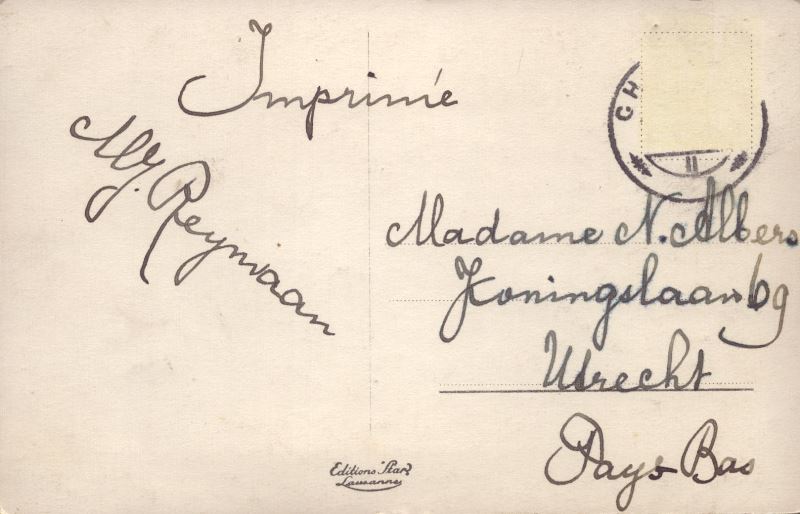 Imprimé
Reynvaan
CH
II
Madame N. Albers
Koningslaan 69
Utrecht
Pays-Bas
Editions "Star"
Lausanne